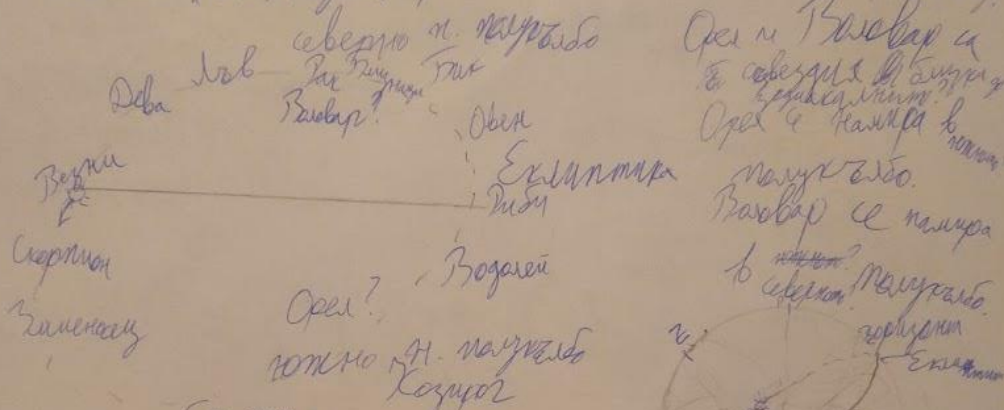 северно н. полукълбо
Дева Лъв Рак Близнаци Бик
Воловар?
Овен
Везни
Еклиптика
Риби
Скорпион
Водолей
Орел?
южно н. полукълбо
Козирог
Орел и Воловар са
съвездия близки до
зодиакалните.
Орел се намира в южното
полукълбо.
Воловар се намира
в южното?
северното полукълбо.
хоризонт